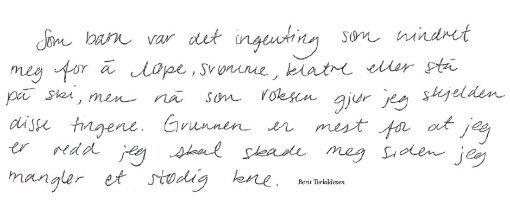 Som barn var det ingenting som hindret
meg for å løpe, svømme, klatre eller stå
på ski, men nå som voksen gjør jeg skjelden
disse tingene. Grunnen er mest for at jeg
er redd jeg skal skade meg siden jeg
mangler et stødig kne. Berit Torkildsen